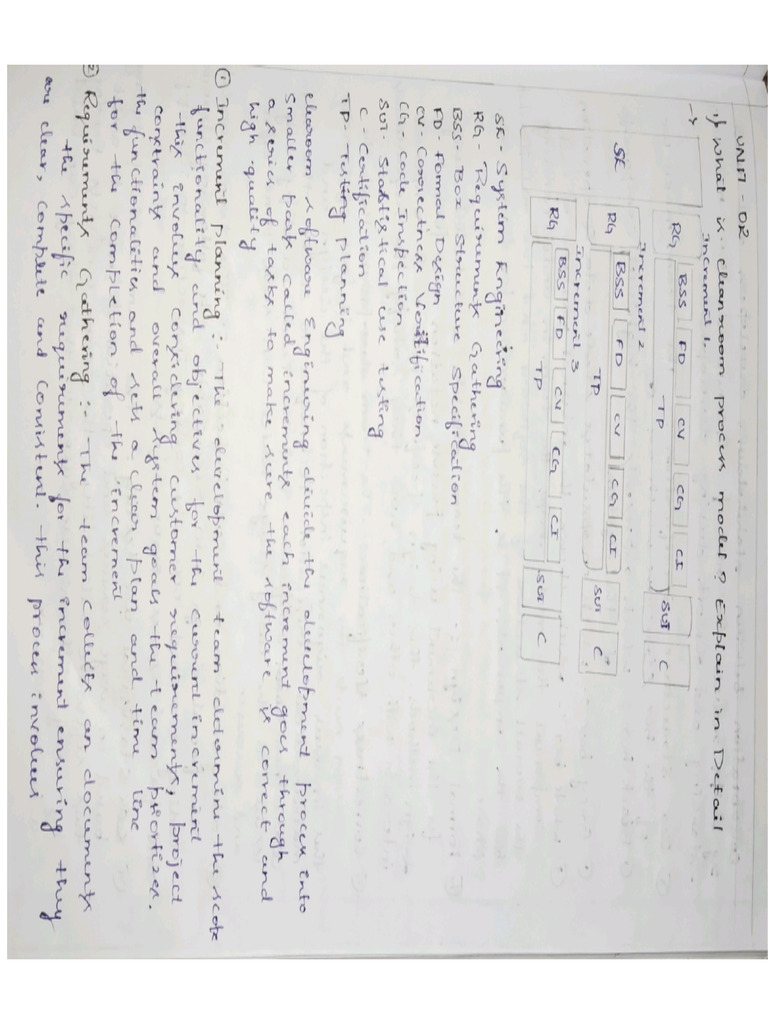 UNIT - 02
1) What is cleanroom process model? Explain in Detail
→
Increment 1.
SE
RG BSS FD CV CG CI SUT C
TP
Increment 2
RG BSS FD CV CG CI SUT C
TP
Increment 3
RG BSS FD CV CG CI SUT C
TP
SE - System Engineering
RG - Requirements Gathering
BSS - Box Structure Specification
FD - Formal Design
CV - Correctness Verification
CG - Code Inspection
SUT - Statistical use testing
C - Certification
TP - Testing planning
cleanroom software Engineering divide the development process into
smaller parts called increments each increment goes through
a series of tasks to make sure the software is correct and
high quality
① Increment planning :- The development team determine the scope
functionality and objectives for the current increment
this involves considering customer requirements, project
constrains and overall system goals the team priortizes.
the functionalities and sets a clear plan and time line
for the completion of the increment
② Requirements Gathering :- The team collects an documents
the specific requirements for the increment ensuring they
are clear, complete and consistent. this process involves